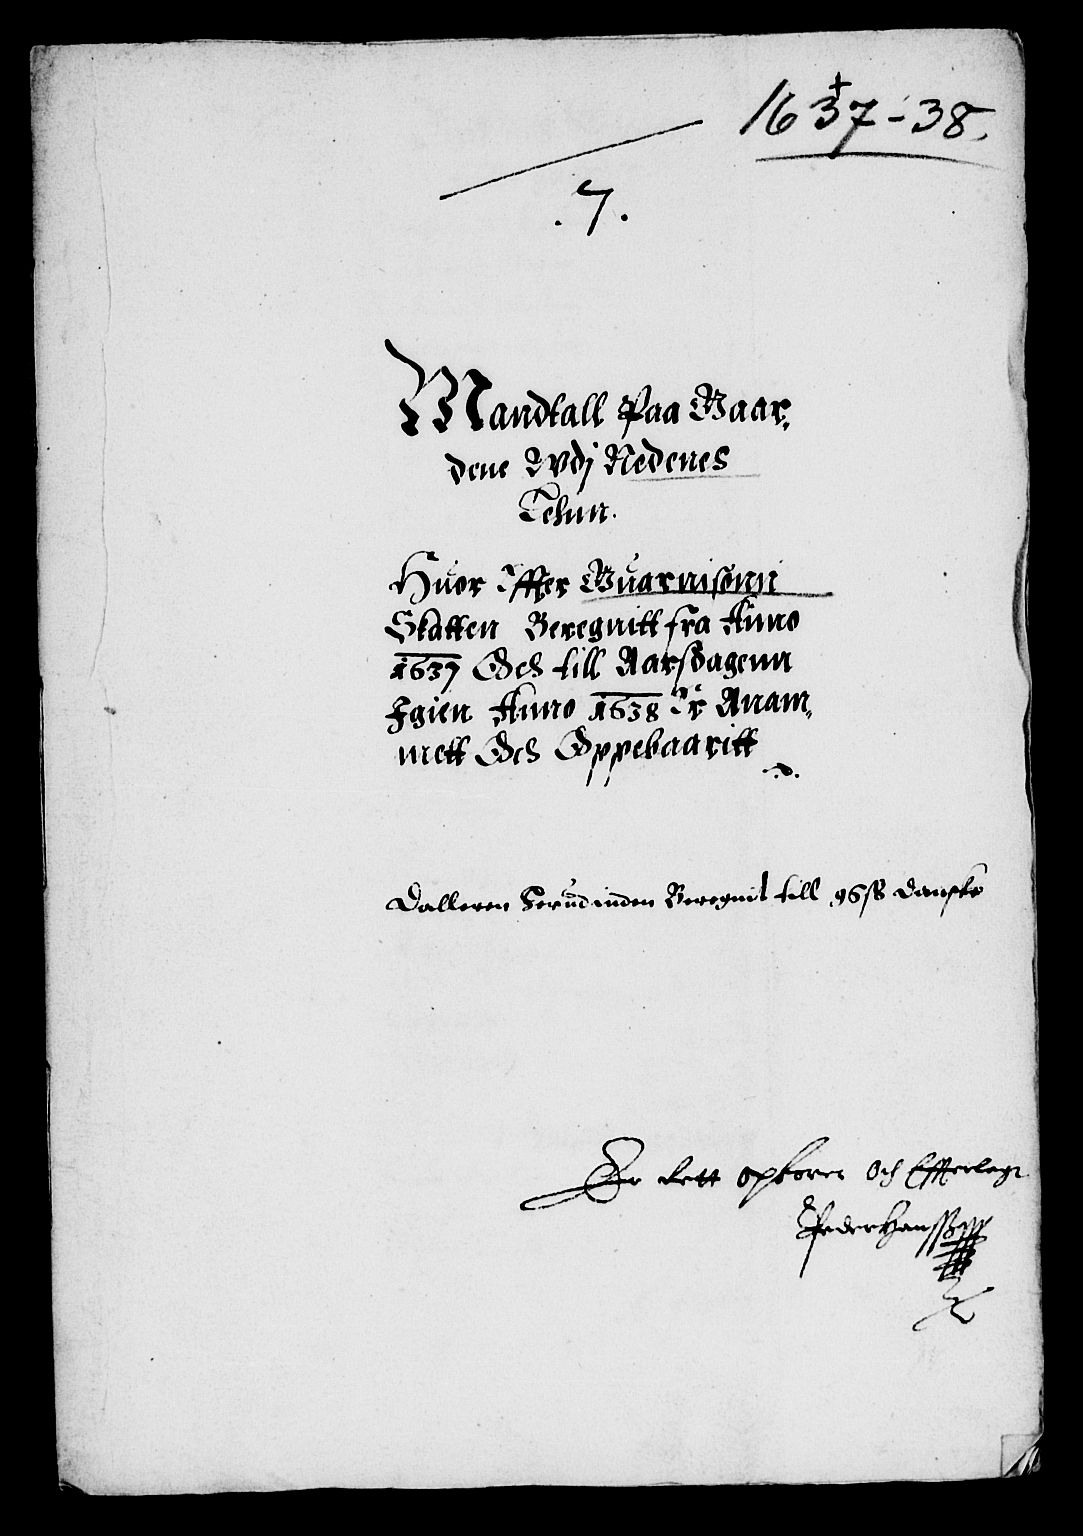 1637-38.
.7.
Mandtall Paa Gaar,
dene Udj Nedenes
Lehnn.
Huor Effter Guarnisonn
Skatten Beregnitt fra Anno
1637 Och till Aarsdagenn
Igien Anno 1638 Er Anam,
mett Och Oppebaaritt
Dalleren herudinden Beregnit till 96 ß Danske
Er Rett opkoret Och Effterlegt
Peder Hanssen